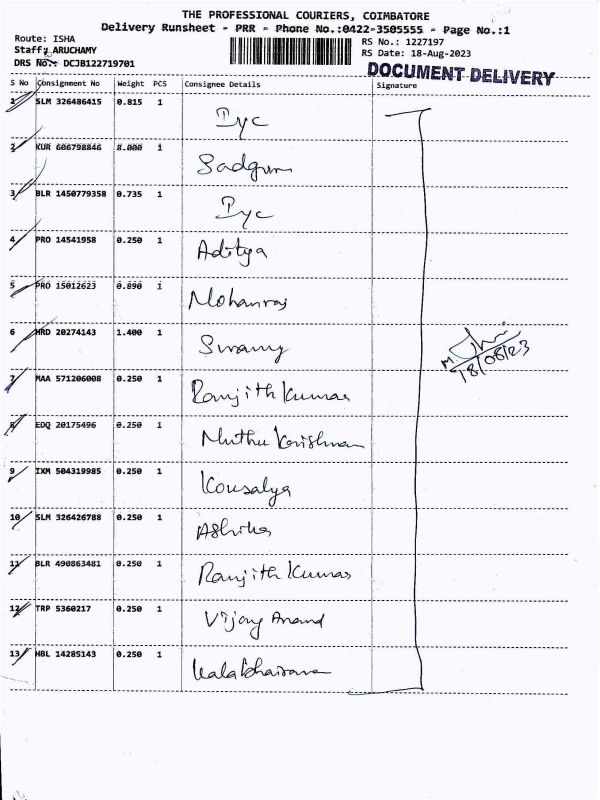 THE PROFESSIONAL COURIERS, COIMBATORE
Delivery Runsheet - PRR - Phone No.:0422-3505555 - Page No.:1
Route: ISHA
RS No.: 1227197
Staff: ARUCHAMY
RS Date: 18-Aug-2023
DRS No.: DCJB122719701
DOCUMENT DELIVERY
S No Consignment No Weight PCS Consignee Details Signature
1 SLM 326486415 0.815 1 Iyc
2 KUR 606798846 8.000 1 Sadguru
3 BLR 1450779358 0.735 1 Iyc
4 PRO 14541958 0.250 1 Aditya
5 PRO 15012623 0.890 1 Mohanraj
6 HRD 20274143 1.400 1 Swamy
18/08/23
7 MAA 571206008 0.250 1 Ranjith Kumar
8 EDQ 20175496 0.250 1 Muthu Krishnan
9 IXM 504319985 0.250 1 Kousalya
10 SLM 326426788 0.250 1 Ashika
11 BLR 490863481 0.250 1 Ranjith Kumar
12 TRP 5360217 0.250 1 Vijay Anand
13 HBL 14285143 0.250 1 Kalabhairava